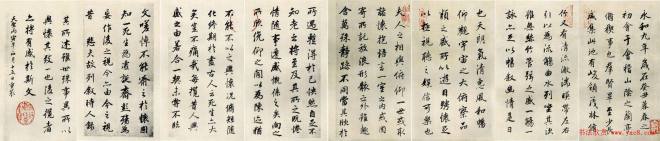 永和九年歲在癸丑暮春之
初會于會稽山陰之蘭亭
脩稧事也羣賢畢至少長
咸集此地有峻領茂林脩
竹又有清流激湍暎帶左右
引以為流觴曲水列坐其次
雖無絲竹管弦之盛一觴一
詠亦足以暢敘幽情是日
也天朗氣清惠風和暢仰
觀宇宙之大俯察品
類之盛所以遊目騁懷足
以極視聽之娛信可樂也
夫人之相與俯仰一世或取
諸懷抱悟言一室之內或因
寄所託放浪形骸之外雖趣
舍萬殊靜躁不同當其欣於
所遇蹔得於己快然自足不
知老之將至及其所之既惓
情隨事遷感慨係之矣向之
所欣俛仰之閒以為陳迹猶
不能不以之興懷況脩短隨
化終期於盡古人云死生亦大
矣豈不痛哉每攬昔人興
感之由若合一契未嘗不臨
文嗟悼不能喻之於懷固
知一死生為虛誕齊彭殤為
妄作後之視今亦由今之視
昔悲夫故列敘時人錄
其所述雖世殊事異所以
興懷其致一也後之攬者
亦將有感於斯文